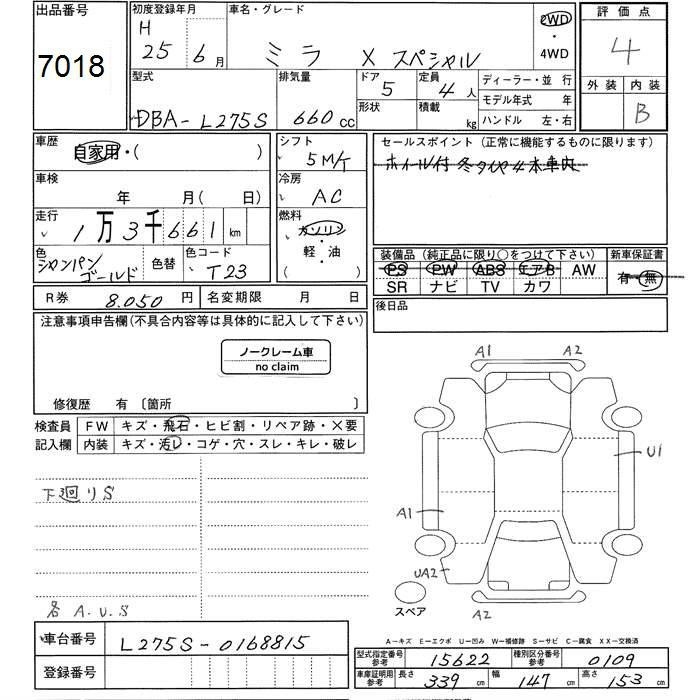 出品番号
7018
初度登録年月
H
25 6月
車名・グレード
ミラ X スペシャル
2WD
・
4WD
評価点
4
外装 内装
B
型式
DBA-L275S
排気量
660 cc
ドア
5
形状
定員
4人
積載
kg
ディーラー・並 行
モデル年式 年
ハンドル 左・右
車歴
自家用・( )
車検
年 月(日)
走行
1万3千661km
色
シャンパンゴールド
色替
色コード
T23
シフト
5M/T
冷房
AC
燃料
ガソリン
軽・油
( )
セールスポイント(正常に機能するものに限ります)
ホイール付 冬タイヤ4本車内
装備品(純正品に限り○をつけて下さい)
PS PW ABS エアB AW
SR ナビ TV カワ
新車保証書
有・無
後日品
R券 8.050円
名変期限 月 日
注意事項申告欄(不具合内容等は具体的に記入して下さい)
ノークレーム車
no claim
修復歴 有 〔箇所
検査員
記入欄
FW キズ・飛石・ヒビ割・リペア跡・×要
内装 キズ・汚レ・コゲ・穴・スレ・キレ・破レ
下廻りS
各 A.U.S
A1 A2
U1
A1
UA2
A2
スペア
A-キズ E-エクボ U-凹み W-補修跡 S-サビ C-腐食 XX-交換済
車台番号 L275S-0168815
登録番号
型式指定番号
参考
15622
種別区分番号
参考
0109
車庫証明用
参考
長さ 339cm 幅 147cm 高さ 153cm